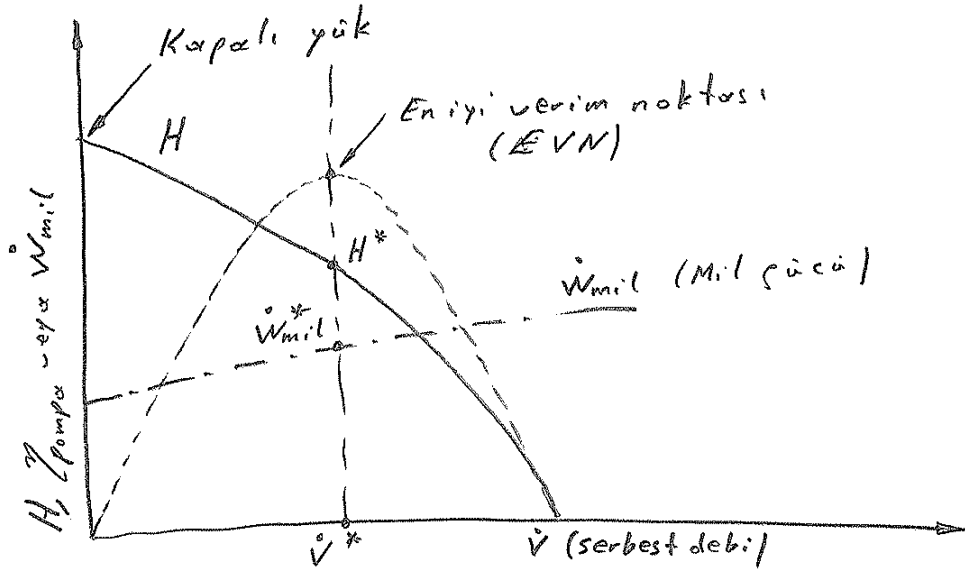 Kapalı yük
En iyi verim noktası
(EVN)
H
H*
Ẇmil (Mil gücü)
Ẇ*mil
H, ηpompa veya Ẇmil
V̇*
V̇ (serbest debi)